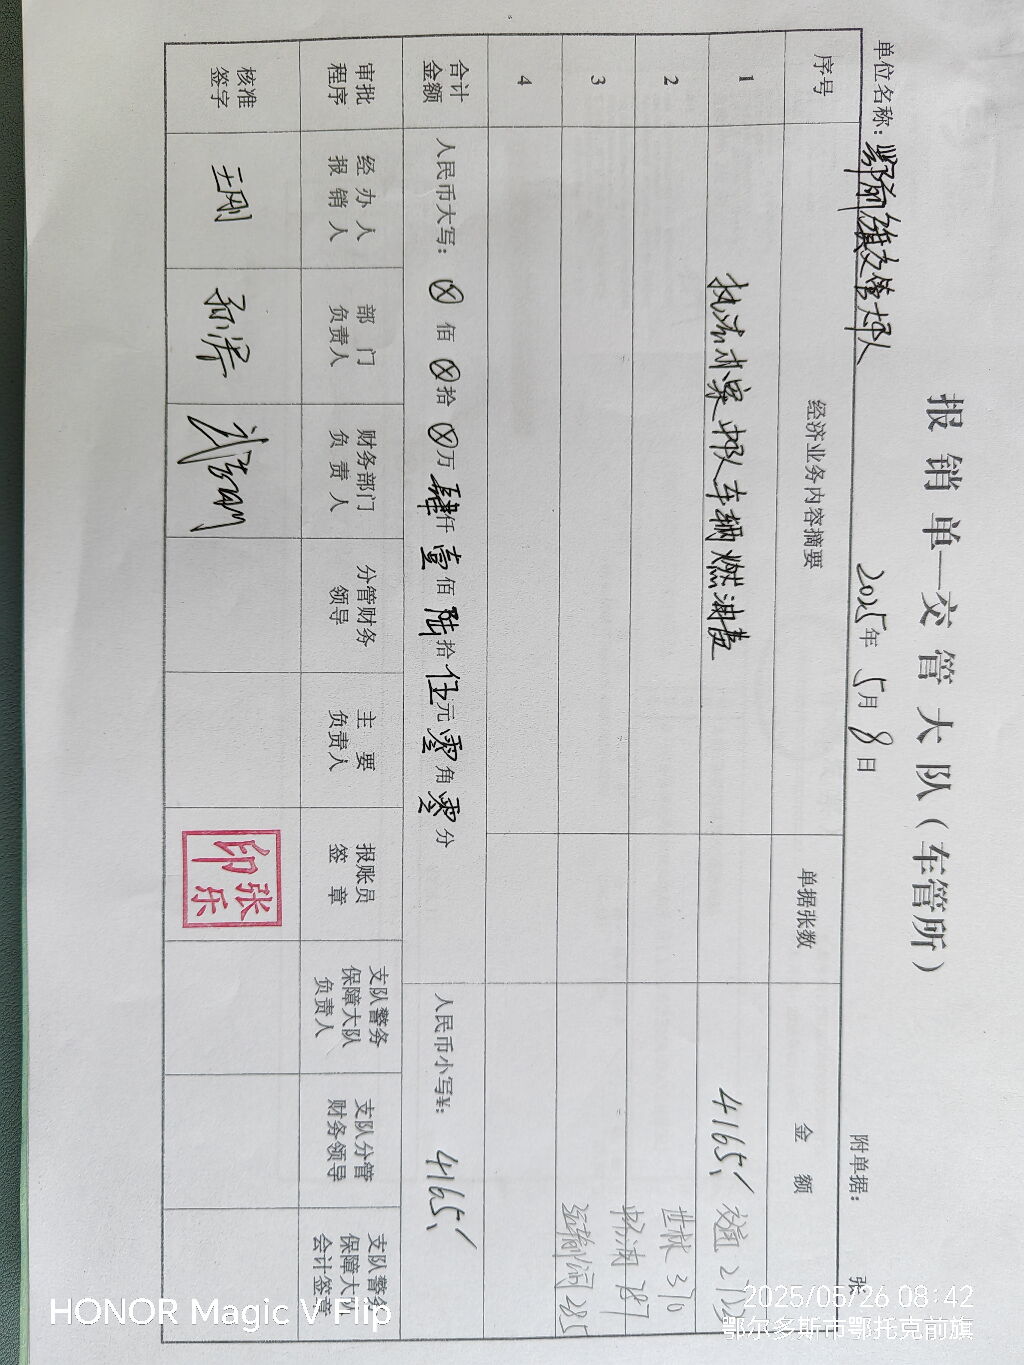 报销单—交管大队（车管所）
单位名称：鄂前旗交管大队
2025年 5月 8日
附单据： 张
序号 经济业务内容摘要 单据张数 金 额
1 执法办案中队车辆燃油费 4165/
2
3
4
310
787
285
合计金额 人民币大写：⊗佰⊗拾⊗万肆仟壹佰陆拾伍元零角零分 人民币小写¥：4165/
审批程序 经办人报销人 部门负责人 财务部门负责人 分管财务领导 主要负责人 报账员签章 支队警务保障大队负责人 支队分管财务领导 支队警务保障大队会计签章
核准签字 王刚
张乐印
HONOR Magic V Flip
2025/05/26 08:42
鄂尔多斯市鄂托克前旗